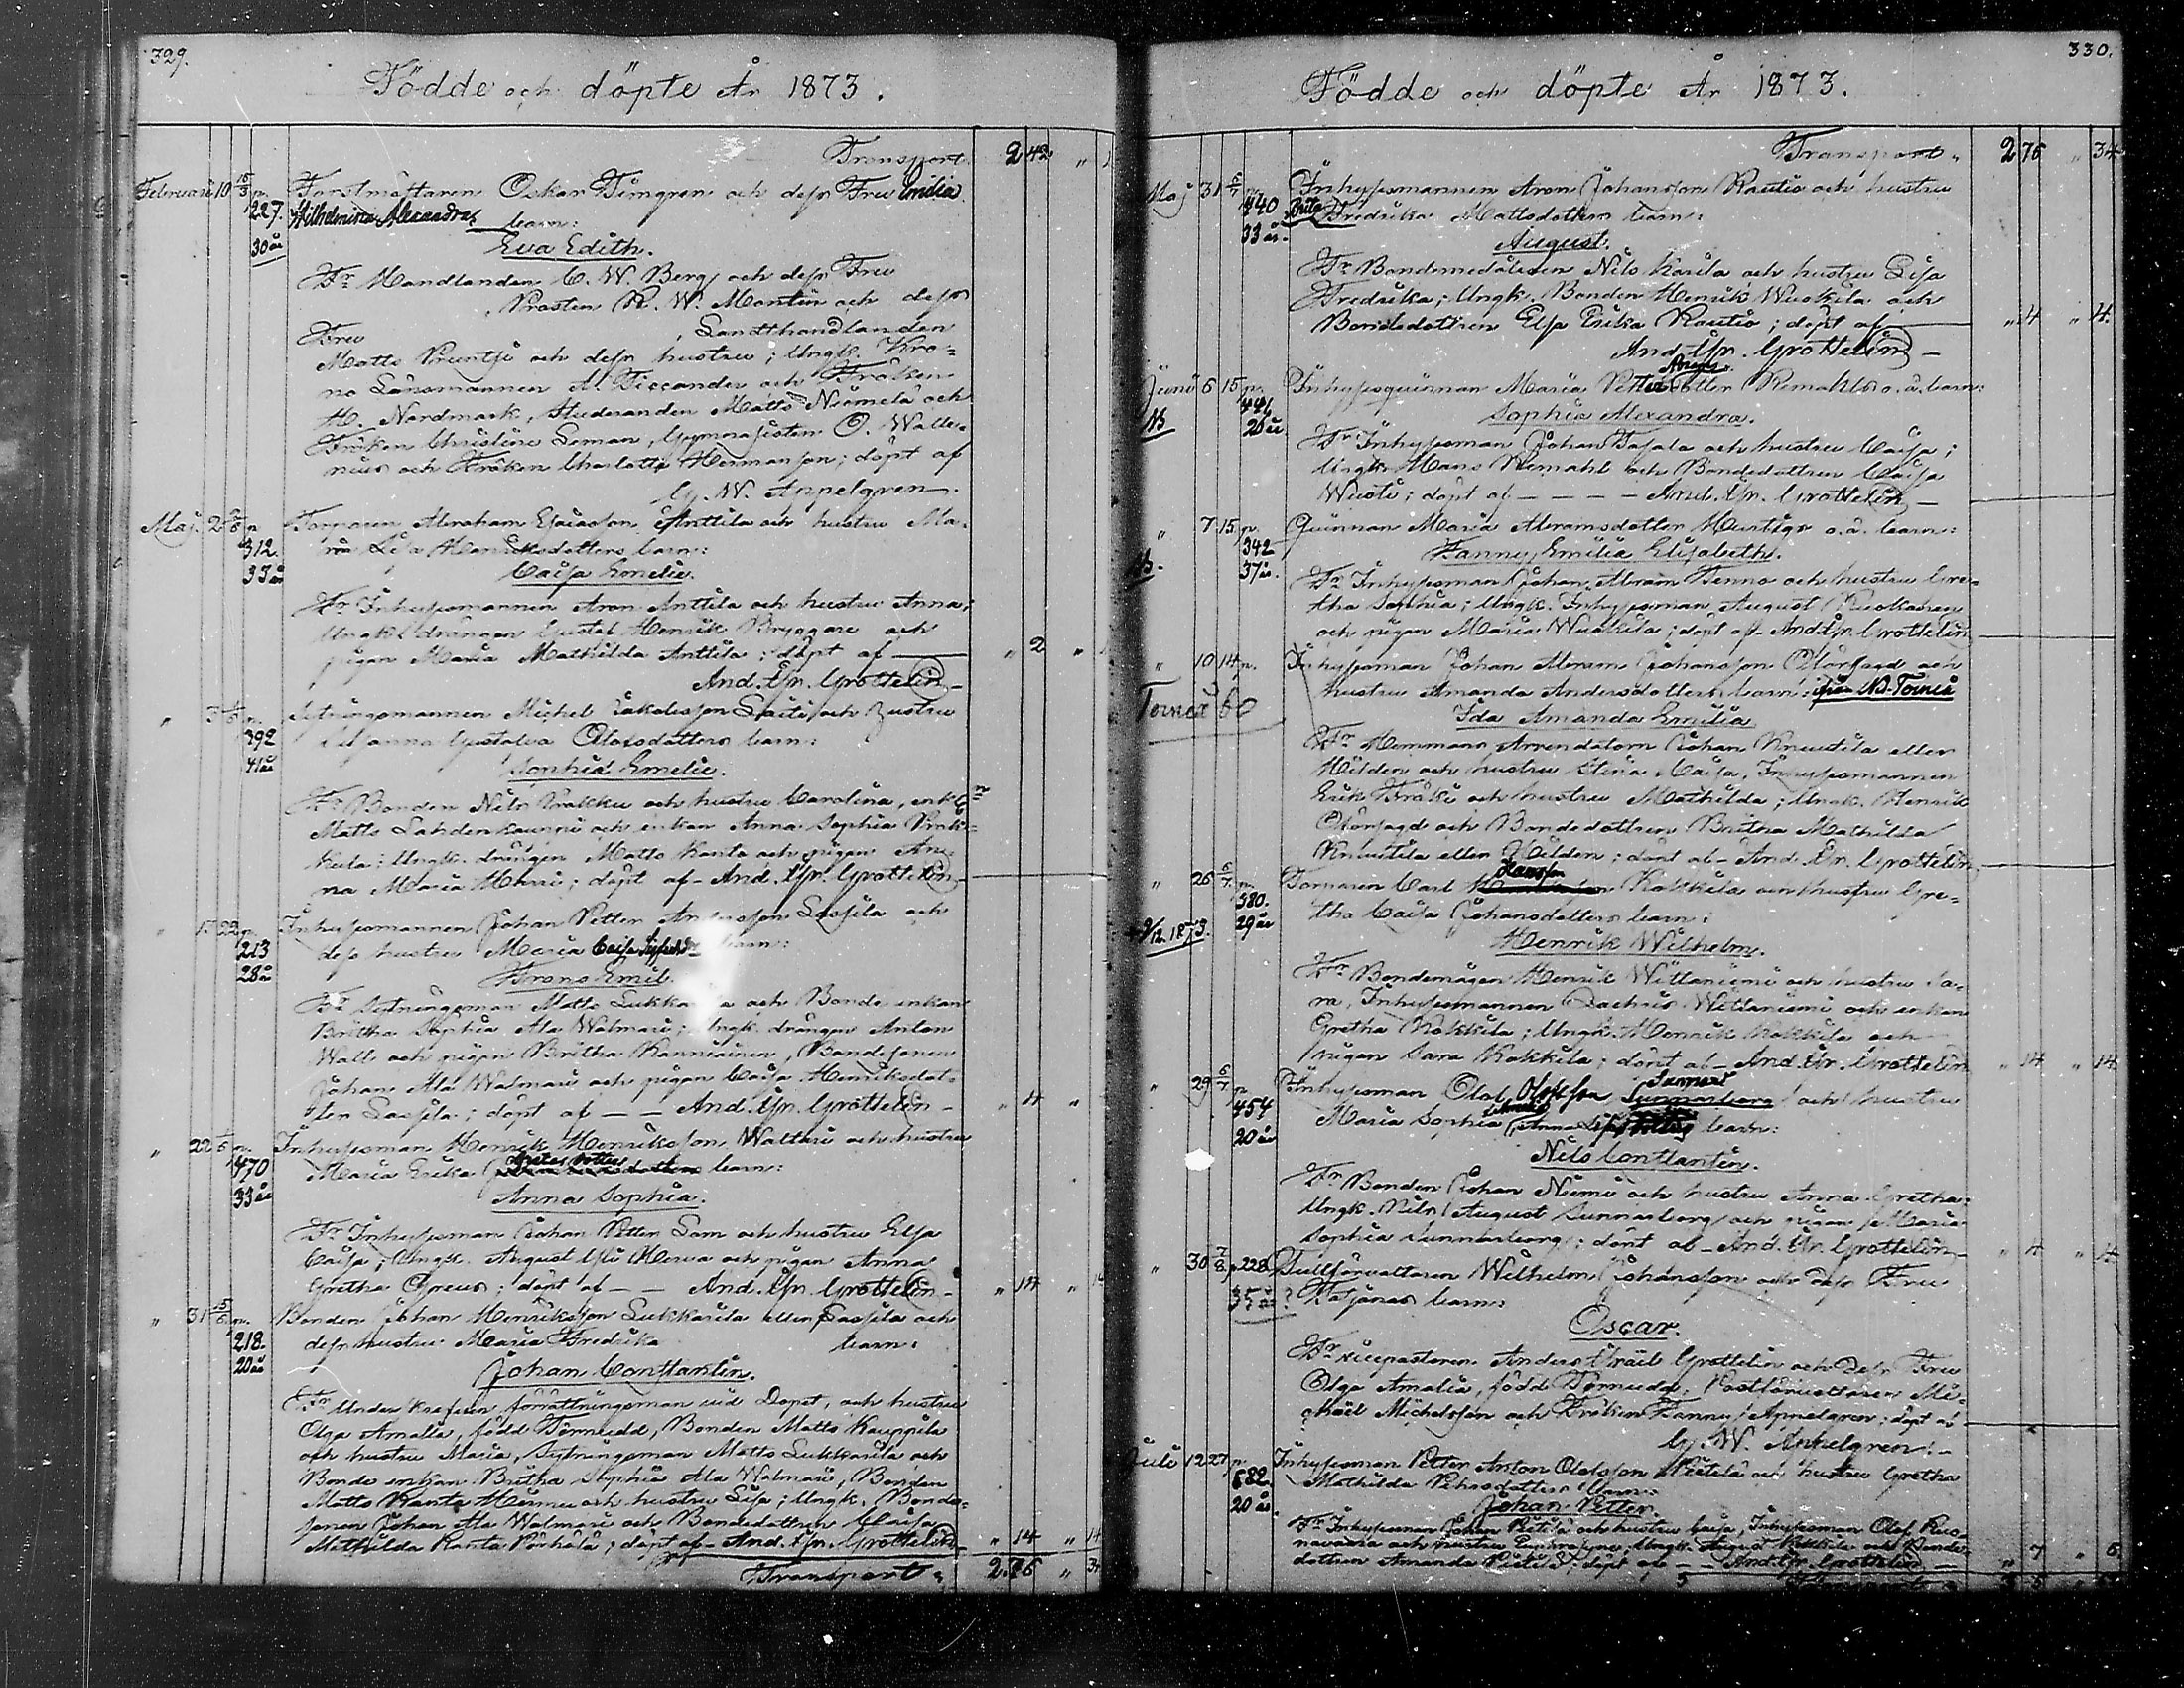 329.
Födde och döpte År 1873.
Transport 2 42 "
Februarii 10 16/3 n. Forstmästaren Oskar Timgren och dess Fru Emilia
227. Wilhelmina Alexandras barn:
30 år Eva Edith.
Fr Handlanden C. W. Berg och dess Fru
, Prosten R. W. Montin och dess
Fru , Landthandlanden
Matts Pruntsi och dess hustru; Ungk. Kro-
no Länsmannen A. Ticcander och Fröken
H. Nordmark, Studeranden Matts Niemelä och
Fröken Christine Loman, Gymnasisten O. Walle-
nius och Fröken Charlotta Hermanson; döpt af
G. W. Appelgren.
Maj. 2 n. Torparen Abraham Esaiasson Anttila och hustru Ma-
312. ria Lisa Henriksdotters barn:
33 år Caisa Emelie.
Fr Inhysesmannen Aron Anttila och hustru Anna;
Ungk. drängen Gustaf Henrik Bryggare och
pigan Maria Mathilda Anttila; döpt af — " 2 "
And. Isr. Grottelin —
" 3 n. Sytningsmannen Michel Jakobsson Laiti och hustru
392 Susanna Gustava Olofsdotters barn:
41 år Sophia Emelie.
Fr Bonden Nils Prakku och hustru Carolina, enkl.
Matts Lahdenkauppi och enkan Anna Sophia
Ungk. drängen Matts Kanto och pigan An-
na Maria; döpt af — And. Isr. Grottelin —
" 15 22 n. Inhysesmannen Johan Petter Andersson Lassila och
213 dess hustru Maria Caisa barn:
28 år Frans Emil.
Fr Sytningsman Matts och Bonde enkan
Britha Sophia Ala Walmari; Ungk. drängen Anton
Wall och pigan Britha Kanniainen, Bondesonen
Johan Ala Walmari och pigan Caisa Henriksdot-
ter Lassila; döpt af — — And. Isr. Grottelin — " 4 "
" 22 n. Inhysesman Henrik Henriksson Waltari och hustru
470 Maria Erika barn:
33 år Anna Sophia.
Fr Inhysesman Johan Petter Lam och hustru Elsa
Caisa; Ungk. August och pigan Anna
Gretha Greus; döpt af — — And. Isr. Grottelin — " 14 " 14
" 31 15/6 n. Bonden Johan Henriksson Lukkarila eller Lassila och
218. dess hustru Maria Fredrika barn:
20 år Johan Constantin.
Fr Under förrättningsman vid Dopet, och hustru
Olga Amalia, född Törnudd, Bonden Matts Kauppila
och hustru Maria, Sytningsman Matts Lukkarila och
Bonde enkan Britha Sophia Ala Walmari, Bonden
Matts Kanto och hustru Lisa; Ungk. Bonde-
sonen Johan Ala Walmari och Bondedottren Caisa
Mathilda Ranta; döpt af — And. Isr. Grottelin — " 14 " 14
Transport " 2.76 " 34
330.
Födde och döpte År 1873.
Transport " 2 76 " 34
Maj 31 n. Inhysesmannen Aron Johansson Rautio och hustru
440 Brita Fredrika Mattsdotters barn:
33 år. August.
Fr Nils Karila och hustru Lisa
Fredrika; Ungk. Bonden Henrik Wuokila och
Bondedottren Elsa Erika Rautio; döpt af — " 4 " 4.
And. Isr. Grottelin —
Junii 6 15 n. Inhysesqvinnan Maria Remahls o. ä. barn:
26 år Sophia Alexandra.
Fr Inhysesman Johan Tasala och hustru Caisa;
Ungk. Mans Remahl och Bondedottren Caisa
; döpt af — — — — And. Isr. Grottelin —
" 7 15 n. Qvinnan Maria Abramsdotter Hurtigs o. ä. barn:
342 Fanny Emilia Elisabeth.
37 år. Fr Inhysesman Johan Abram Tenno och hustru Gre-
tha Sophia; Ungk. Inhysesman August Ruokanen
och pigan Maria Wuokila; döpt af — And. Isr. Grottelin
" 10 14 n. Inhysesman Johan Abram Johansson Okörsagd och
Torneå hustru Amanda Andersdotters barn: från N-Torneå
Ida Amanda Emilia.
Fr Hemmans Arrendatorn Johan Knuutila eller
Hilden och hustru Stina Caisa, Inhysesmannen
Erik och hustru Mathilda; Ungk. Henrik
Okörsagd och Bondedottren Britha Mathilda
Knuutila eller Hilden; döpt af — And. Isr. Grottelin
" 26 6/7 n. Torparen Carl Hansson Kokkila och hustru Gre-
380. tha Caisa Johansdotters barn:
9/12 1873. 29 år Henrik Wilhelm.
Fr Henrik Wittaniemi och hustru Sa-
ra, Inhysesmannen Zachris Wittaniemi och enkan
Gretha Kokkila; Ungk. Henrik Kokkila och
pigan Sara Kokkila; döpt af — And. Isr. Grottelin " 14 " 14
" 29 6/7 n. Inhysesman Olof Olofsson Sunnarborg och hustru
454 Maria Sophia barn:
20 år Nils Constantin.
Fr Bonden Johan Niemi och hustru Anna Gretha;
Ungk. Nils August Sunnarborg och pigan Maria
Sophia Sunnarborg; döpt af — And. Isr. Grottelin — " 4 " 4
" 30 7/8 p. 228 Tullförvaltaren Wilhelm Johansson och dess Fru
35 år? Tatjanas barn:
Oscar.
Fr Vicepastoren Anders Israel Grottelin och dess Fru
Olga Amalia, född Törnudd, Postförvaltaren Mi-
chael Michelsson och Fröken Fanny Appelgren; döpt af
G. W. Appelgren. —
Juli 12 27 n. Inhysesman Petter Anton Olofsson Pietilä och hustru Gretha
682 Mathilda Petersdotters barn:
20 år. Johan Petter.
Fr Inhysesman Johan Pietilä och hustru Caisa, Inhysesman Olof Ruo-
navaara och hustru, Ungk. August Kokkila och Bonde-
dottren Amanda Pietilä; döpt af — — And. Isr. Grottelin — " 7 " 6.